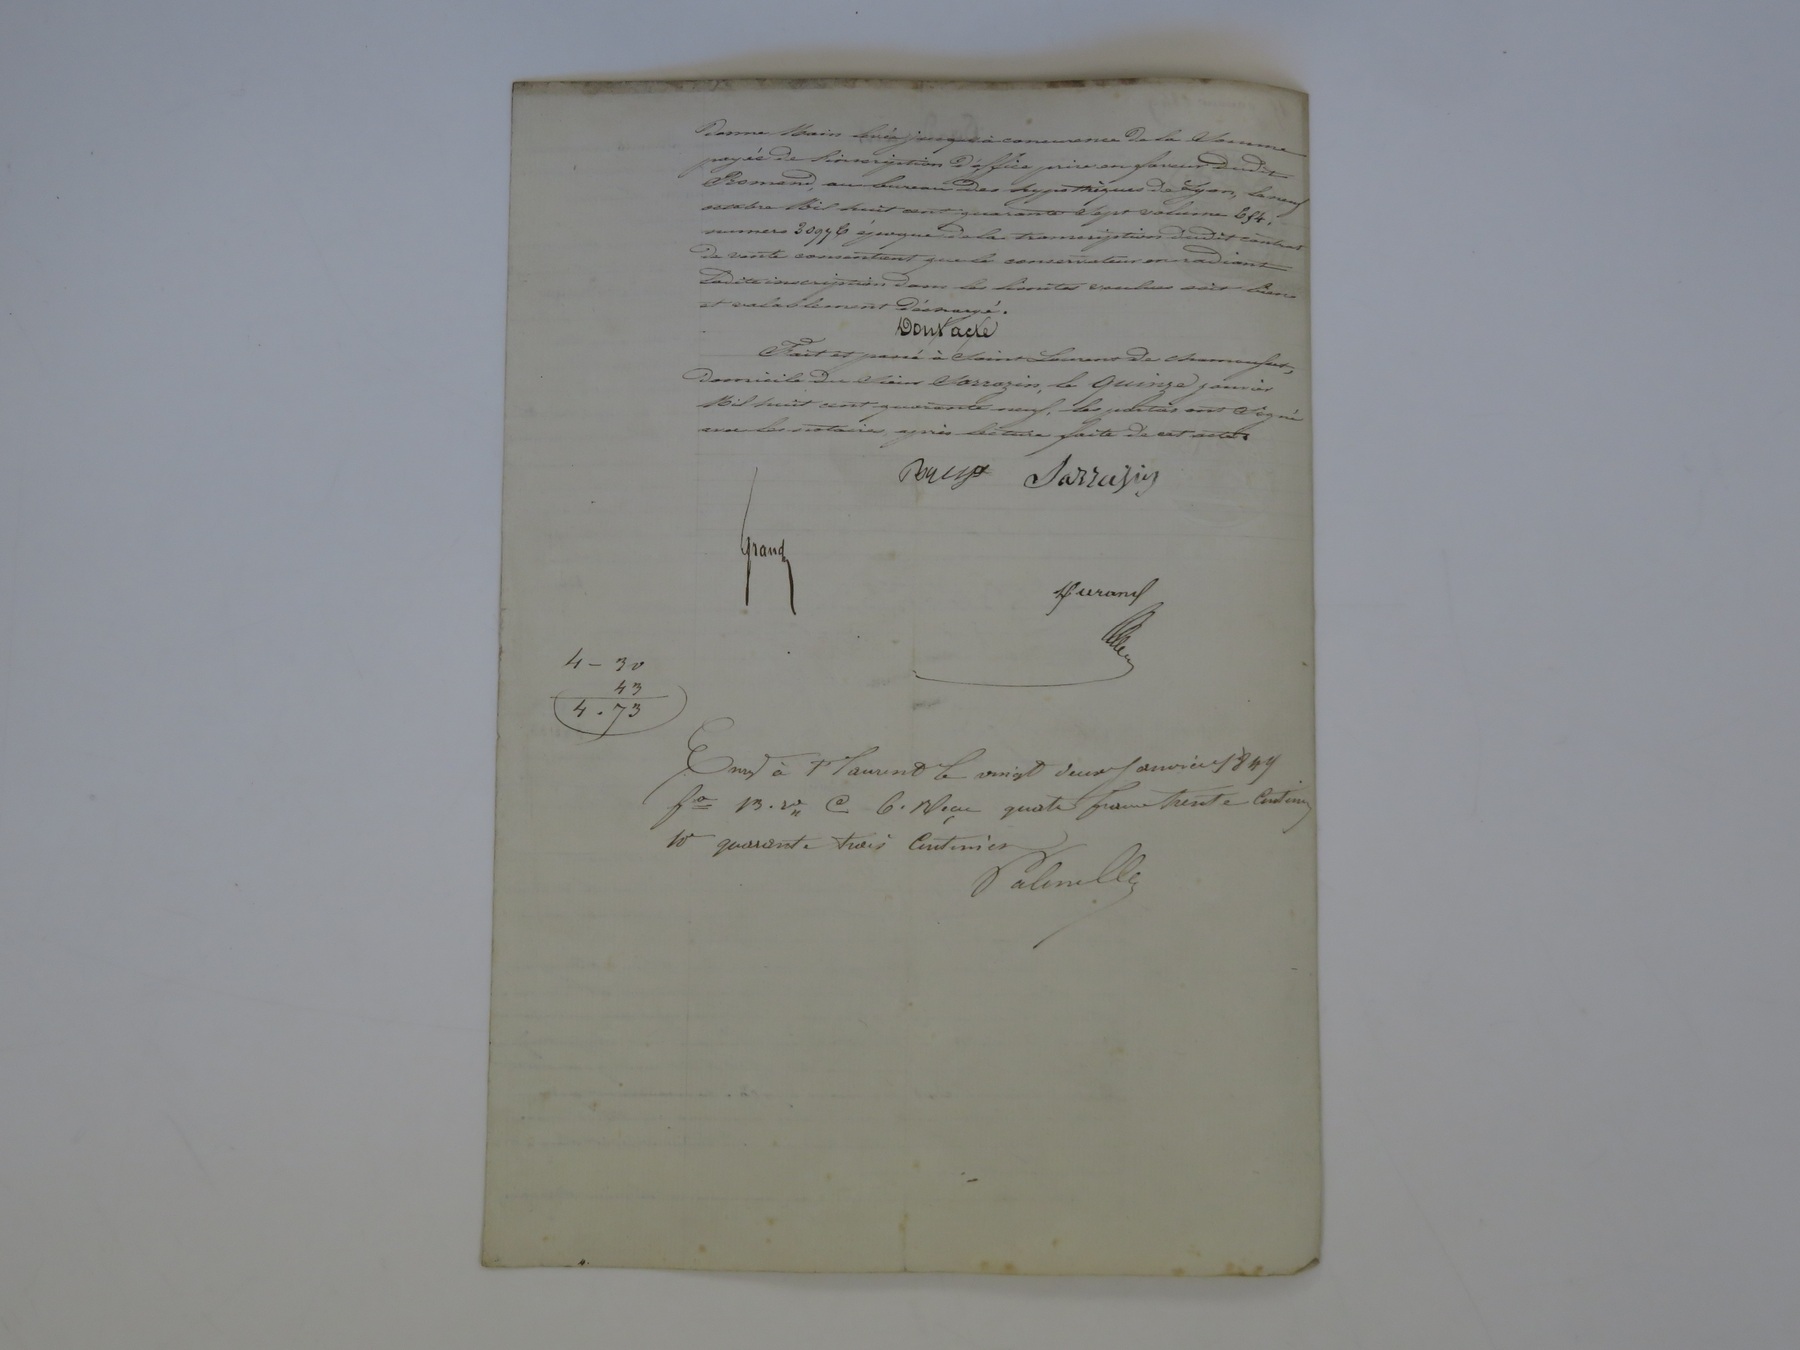 Donne Main levée jusqu'à concurrence de la Somme
payée de l'inscription d'office prise en faveur dudit
Romand, au bureau des hypothèques de Lyon, le neuf
octobre Mil huit cent quarante Sept volume
numero époque de la transcription dudit contrat
de vente consentant que le conservateur en radiant
Ladite inscription dans les limites voulues soit bien
et valablement déchargé.
Dont acte
Fait et passé à Saint Laurent de chamousset,
domicile du Sieur Sarrazin, le Quinze janvier
Mil huit cent quarante neuf, les parties ont Signé
avec les notaires, après lecture faite de cet acte.
Sarrazin
Grand
Durand
4 - 30
43
4 . 73
Enreg à St Laurent le vingt deux Janvier 1849
fo 13. vo C 6. Reçu quatre francs trente Centimes
10e quarante trois Centimes